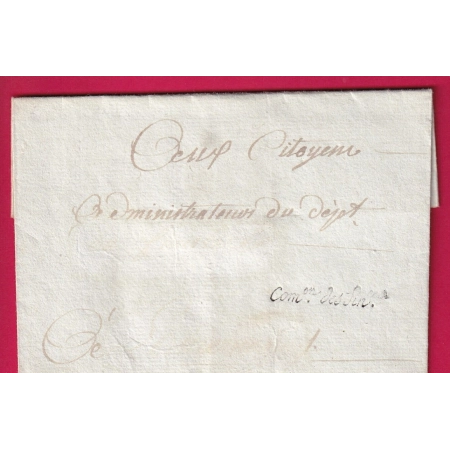 Aux Citoyens
Administrateurs du dépt
Comm.on des Fin.ces
A